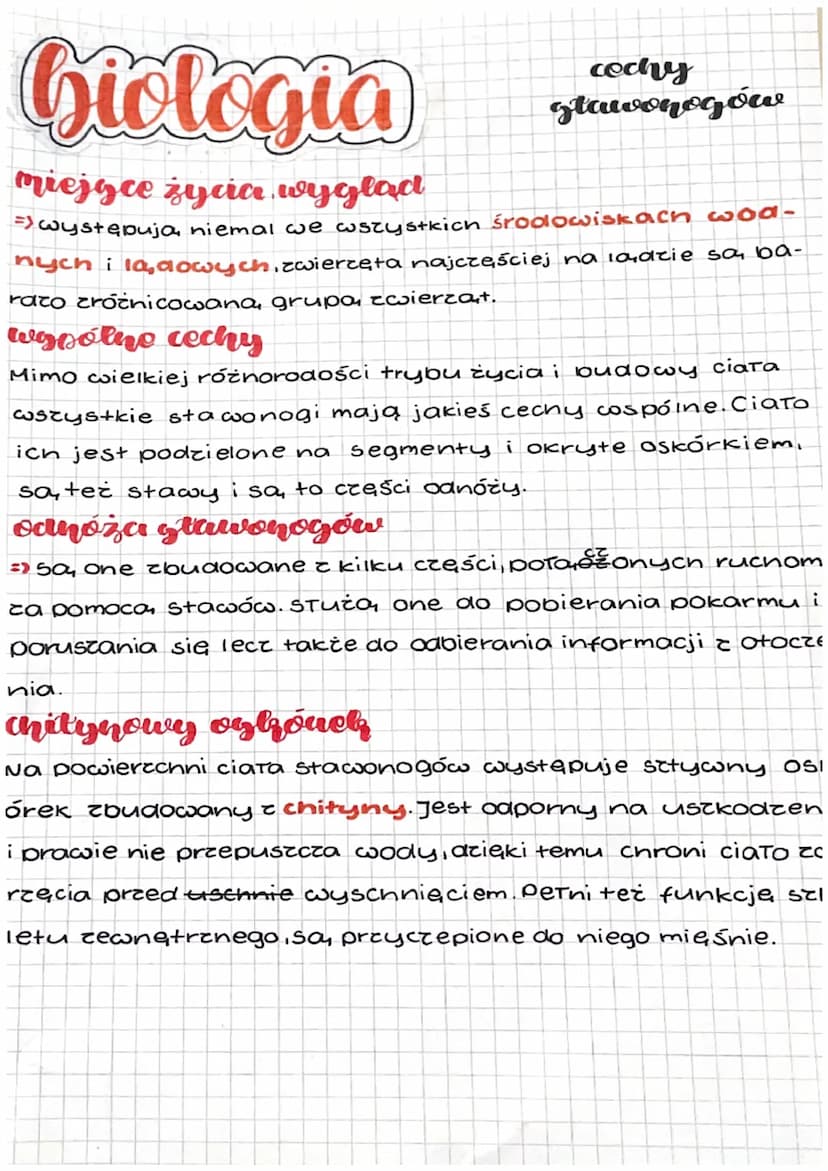 biologia
cechy
stawonogów
miejsce życia, wygląd
=> występują niemal we wszystkich środowiskach wod-
nych i lądowych, zwierzęta najczęściej na lądzie są ba-
rdzo zróżnicowaną grupą zwierząt.
wspólne cechy
Mimo wielkiej różnorodości trybu życia i budowy ciała
wszystkie stawonogi mają jakieś cechy wspólne. Ciało
ich jest podzielone na segmenty i okryte oskórkiem,
są też stawy i są to części odnóży.
odnóża stawonogów
=> są one zbudowane z kilku części, połączonych ruchom
za pomocą stawów. Służą one do pobierania pokarmu i
poruszania się lecz także do odbierania informacji z otocze
nia.
chitynowy oskórek
Na powierzchni ciała stawonogów występuje sztywny os
órek zbudowany z chityny. Jest odporny na uszkodzen
i prawie nie przepuszcza wody, dzięki temu chroni ciało zw
rzęcia przed uschnie wyschnięciem. Pełni też funkcję szk
letu zewnętrznego, są przyczepione do niego mięśnie.